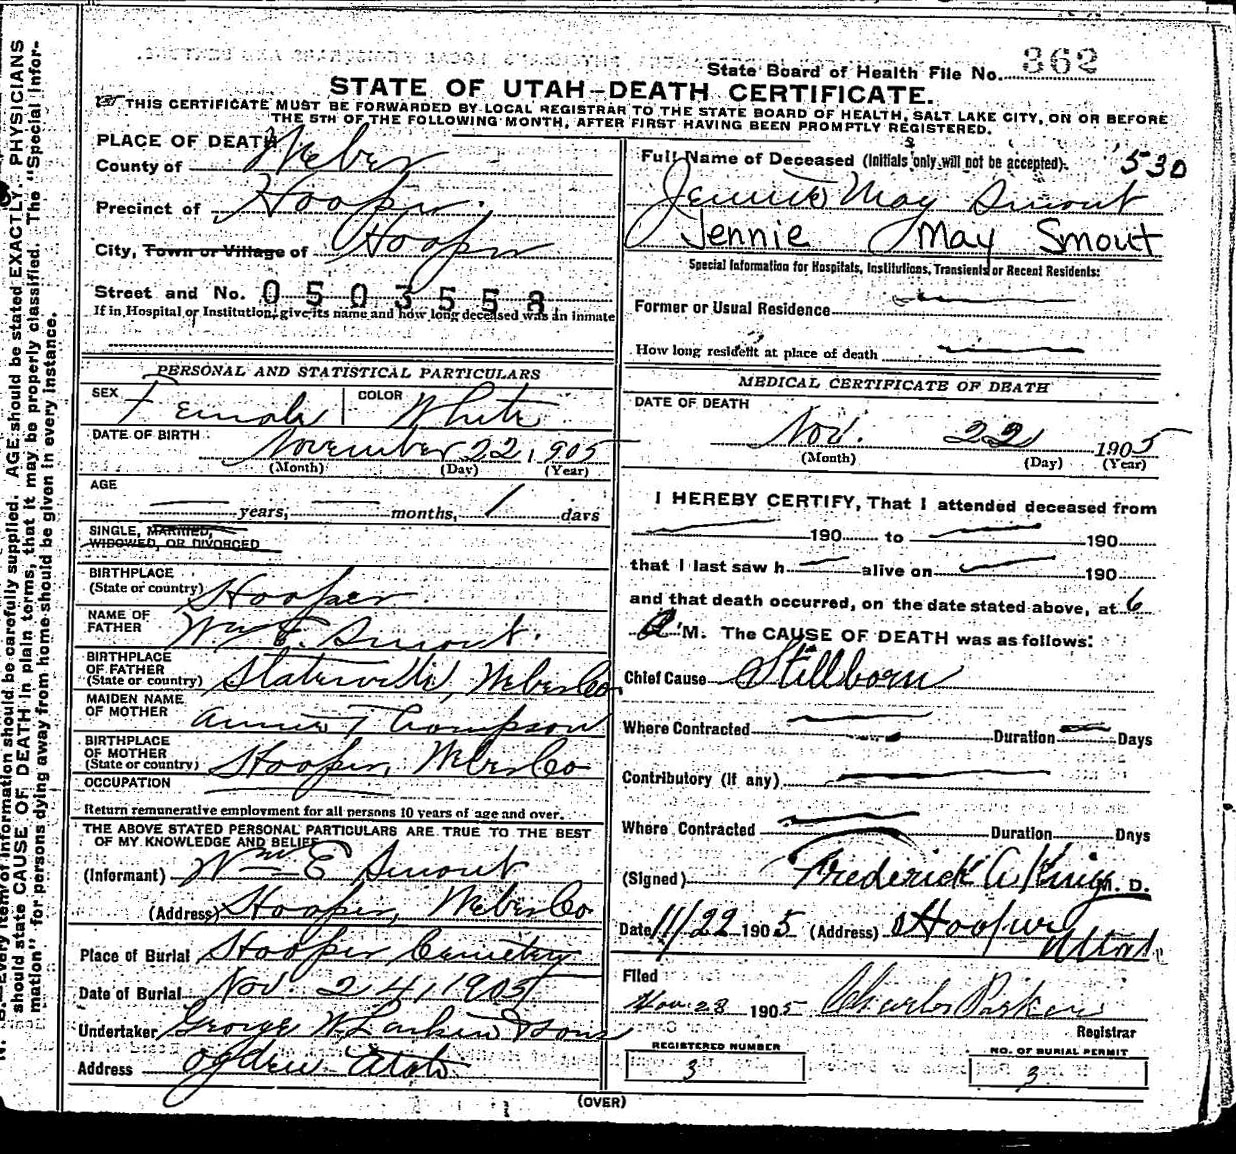 State Board of Health File No. 362
STATE OF UTAH—DEATH CERTIFICATE.
THIS CERTIFICATE MUST BE FORWARDED BY LOCAL REGISTRAR TO THE STATE BOARD OF HEALTH, SALT LAKE CITY, ON OR BEFORE
THE 5TH OF THE FOLLOWING MONTH, AFTER FIRST HAVING BEEN PROMPTLY REGISTERED.
PLACE OF DEATH
County of Weber
Precinct of Hooper.
City, Town or Village of Hooper
Street and No. 0503558
If in Hospital or Institution, give its name and how long deceased was an inmate
PERSONAL AND STATISTICAL PARTICULARS
SEX Female COLOR White
DATE OF BIRTH November 22, 1905
(Month) (Day) (Year)
AGE
years, months, 1 days
SINGLE, MARRIED,
WIDOWED, OR DIVORCED
BIRTHPLACE
(State or country) Hooper.
NAME OF
FATHER Wm E. Smout.
BIRTHPLACE
OF FATHER
(State or country) Slaterville, Weber Co.
MAIDEN NAME
OF MOTHER Annie Thompson
BIRTHPLACE
OF MOTHER
(State or country) Hooper, Weber Co
OCCUPATION
Return remunerative employment for all persons 10 years of age and over.
THE ABOVE STATED PERSONAL PARTICULARS ARE TRUE TO THE BEST
OF MY KNOWLEDGE AND BELIEF
(Informant) Wm E Smout
(Address) Hooper, Weber Co
Place of Burial Hooper Cemetery
Date of Burial Nov. 24, 1905
Undertaker George W Larkin & Sons
Address Ogden Utah
Full Name of Deceased (Initials only will not be accepted). 530
Jennie May Smout
Jennie May Smout
Special Information for Hospitals, Institutions, Transients or Recent Residents:
Former or Usual Residence
How long resident at place of death
MEDICAL CERTIFICATE OF DEATH
DATE OF DEATH
Nov. 22 1905
(Month) (Day) (Year)
I HEREBY CERTIFY, That I attended deceased from
190 to 190
that I last saw h alive on 190
and that death occurred, on the date stated above, at 6
A M. The CAUSE OF DEATH was as follows:
Chief Cause Stillborn
Where Contracted Duration Days
Contributory (if any)
Where Contracted Duration Days
(Signed) Frederick A King M. D.
Date 11/22 1905 (Address) Hooper
Utah
Filed
Nov 28 1905 Charles Parker
Registrar
REGISTERED NUMBER
3
NO. OF BURIAL PERMIT
3
(OVER)
N. B.—Every item of information should be carefully supplied. AGE should be stated EXACTLY. PHYSICIANS
should state CAUSE OF DEATH in plain terms, that it may be properly classified. The "Special Infor-
mation" for persons dying away from home should be given in every instance.